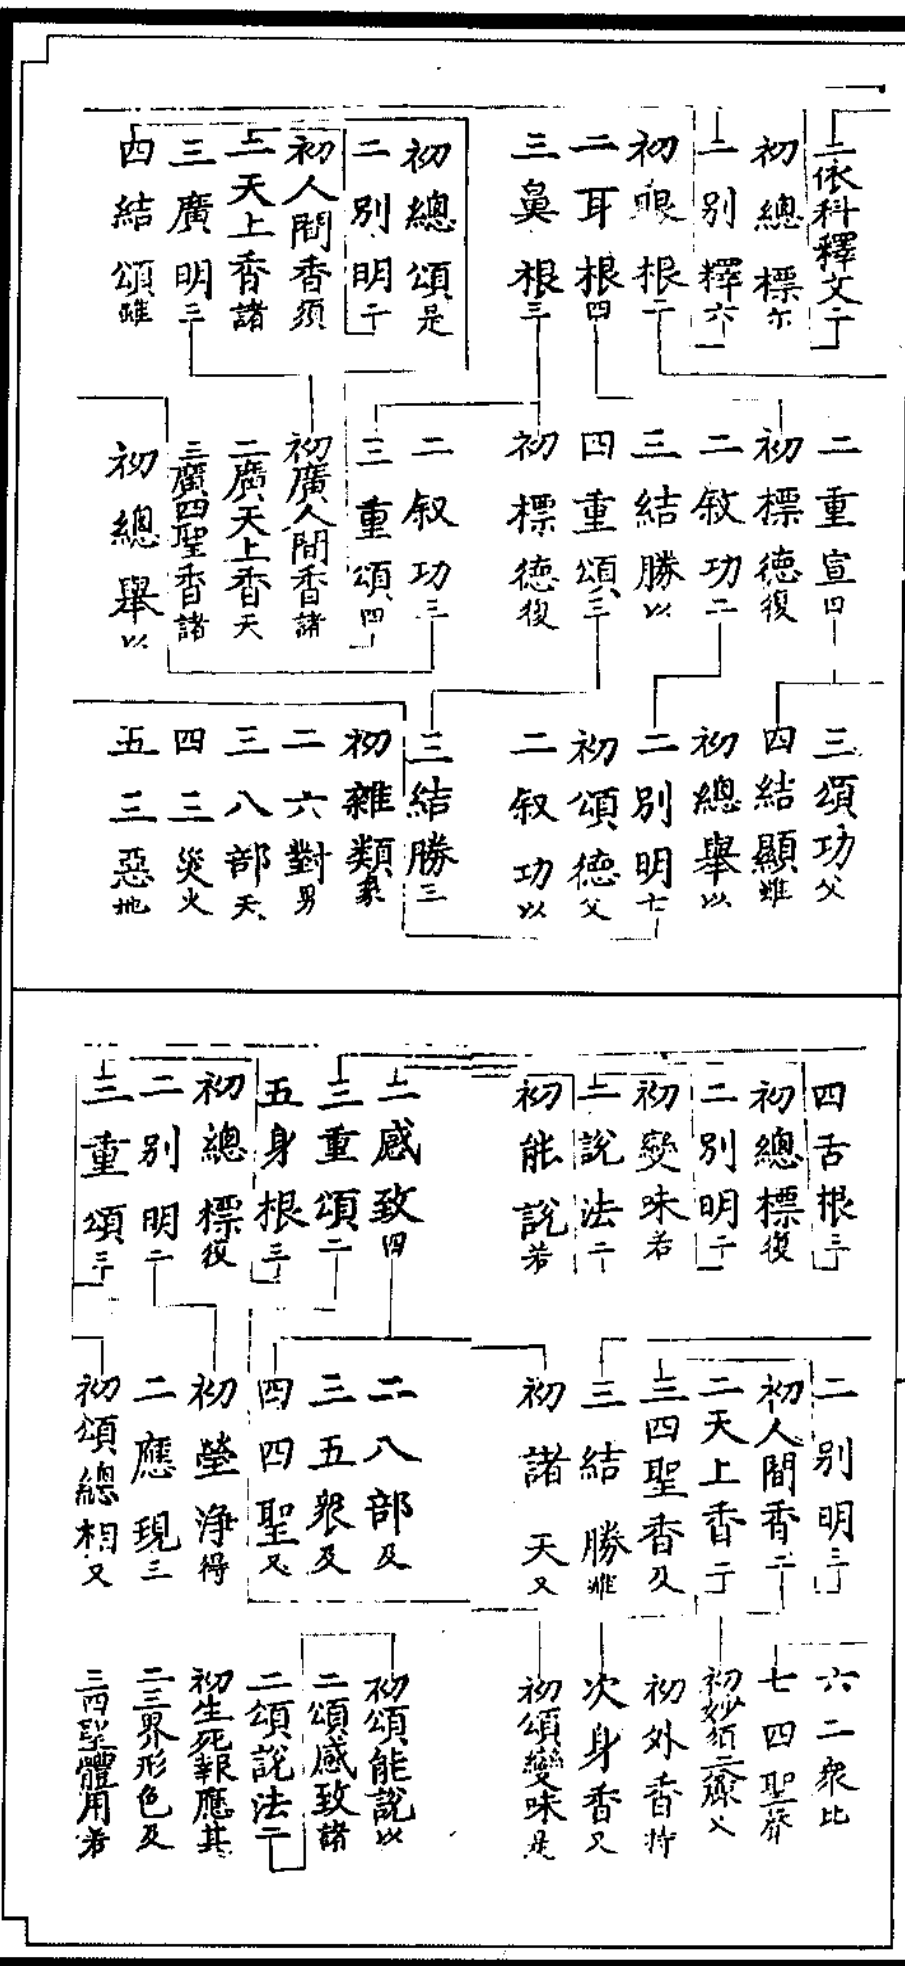 二依科釋文二
初總標尓
二別釋六
初眼根二
二耳根四
三鼻根三
初總頌是
二別明二
初人間香須
二天上香諸
三廣明三
四結頌雖
二重宣四
初標德復
二敘功二
三結勝以
四重頌三
初標德復
二叙功三
三重頌四
初廣人間香諸
二廣天上香天
三廣四聖香諸
初總舉以
三頌功父
四結顯雖
初總舉以
二別明七
初頌德父
二叙功以
三結勝三
初雜類象
二六對男
三八部天
四三災火
五三惡地
四舌根三
初總標復
二別明二
初變味若
二說法二
初能說若
二感致四
三重頌二
五身根三
初總標復
二別明二
三重頌三
二別明三
初人間香二
二天上香二
三四聖香及
三結勝雖
初諸天又
二八部及
三五衆及
四四聖又
初瑩淨得
二應現三
初頌總相又
六二衆比
七四聖聲
初妙須二
初外香持
次身香又
初頌變味是
初頌能說以
二頌感致諸
二頌說法二
初生死報應其
二三界形色及
三四聖體用若